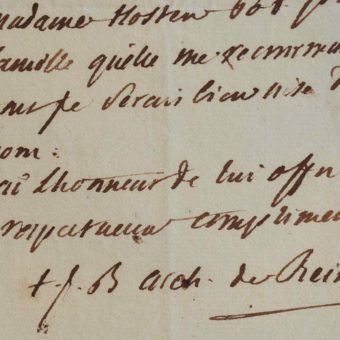 madame hosten
famille quelle me recomma
je serais bien aise d
om.
rai Lhonneur de lui offri
respectueux complimen
+ j. B arch. de Rei